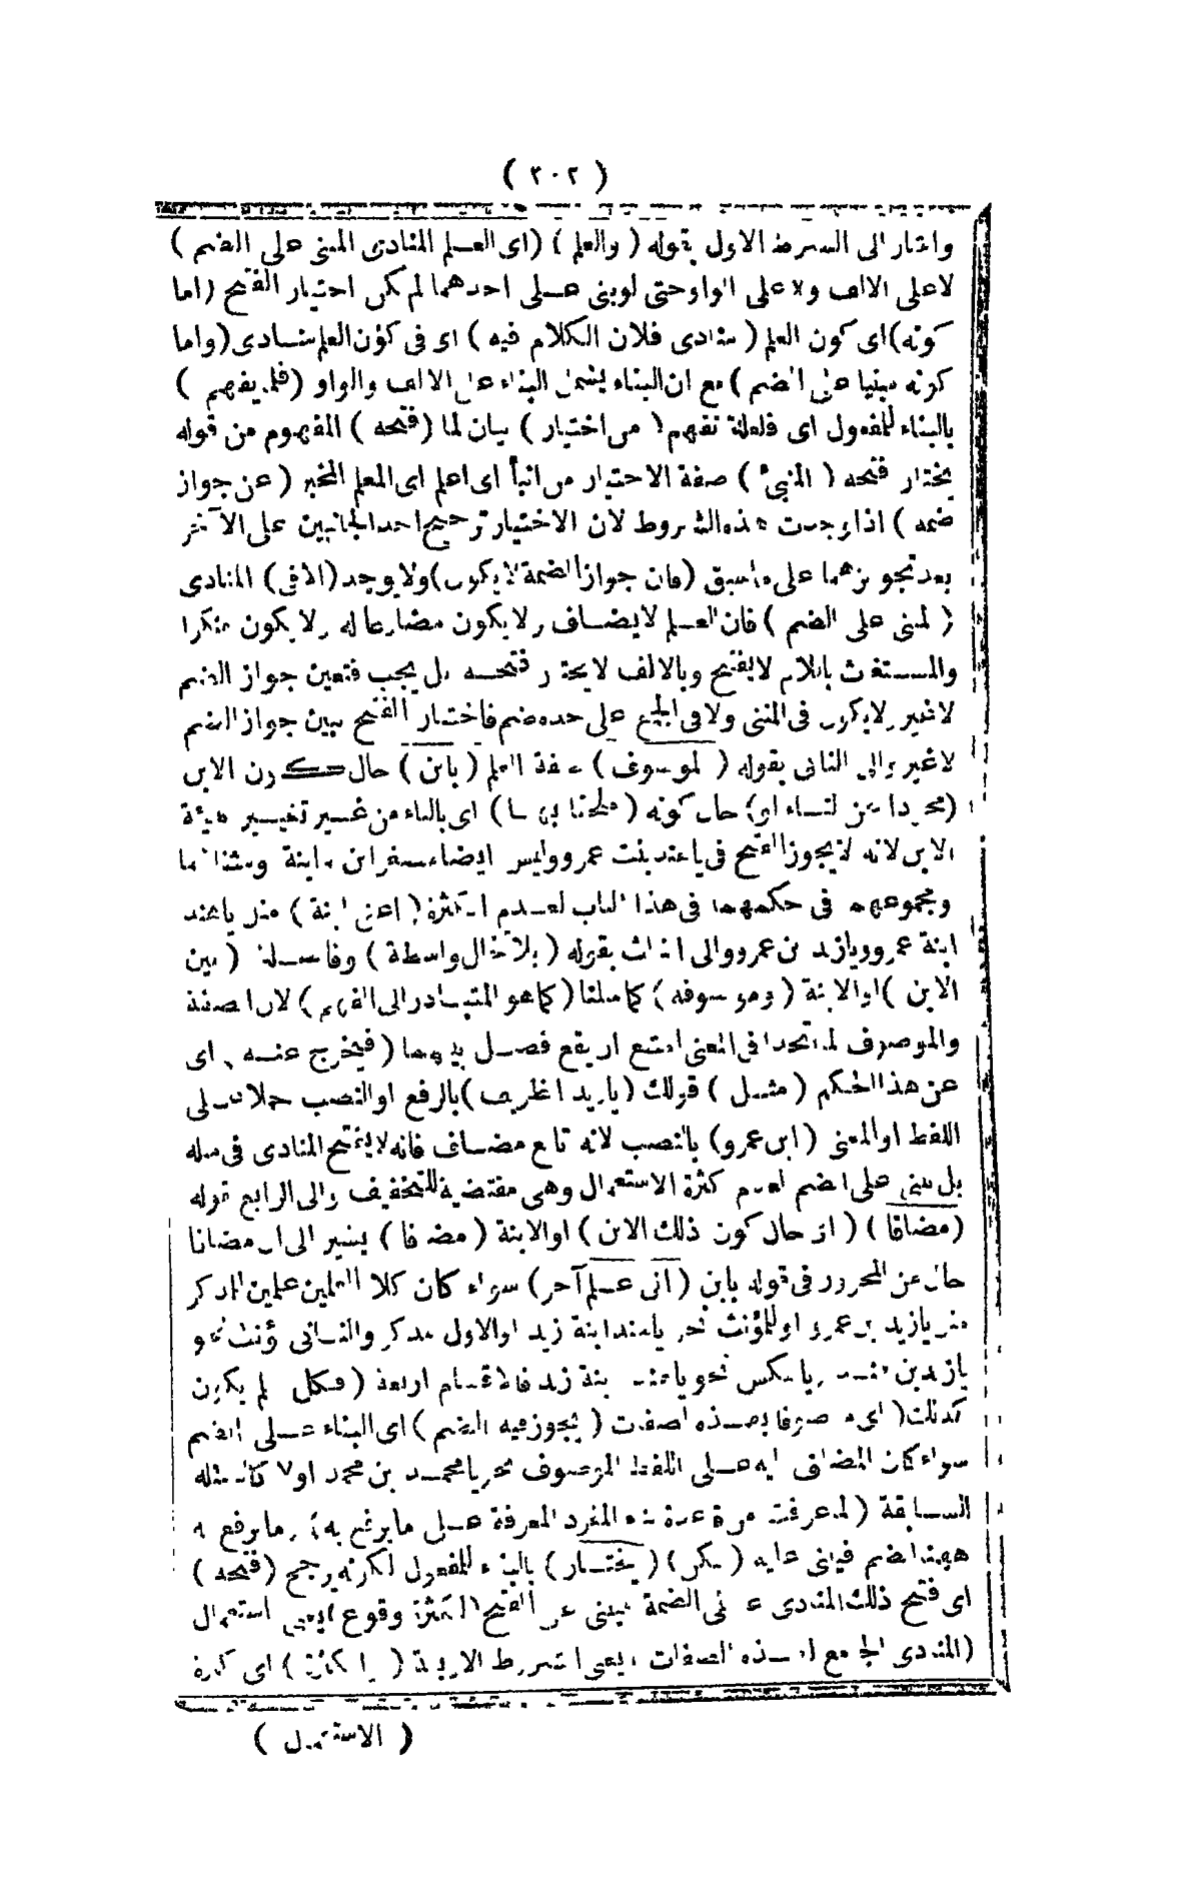 ( ٣٠٢ )
واشار الى الشرط الاول بقوله ( والعلم ) (اى العلم المنادى المبنى على الضم )
لا على الالف ولا على الواو حتى لو بنى على احدهما لم يكن اختيار الفتح (اما
كونه) اى كون العلم ( منادى فلان الكلام فيه ) اى فى كون العلم منادى (واما
كونه مبنيا على الضم ) مع ان البناء يشمل البناء على الالف والواو (فلما يفهم )
بالبناء للمفعول اى فلعلة تفهم ( من اختيار ) بيان لما (فتحه ) المفهوم من قوله
يختار فتحه ( المنبئ ) صفة الاختيار من انبأ اى اعلم اى المعلم المخبر ( عن جواز
ضمه ) اذا وجدت هذه الشروط لان الاختيار ترجيح احد الجانبين على الآخر
بعد تجويزهما على ماسبق (فان جواز الضمة لا يكون) ولا يوجد (الا فى ) المنادى
( المبنى على الضم ) فان العلم لا يضاف ولا يكون مضارعا له ولا يكون منكرا
والمستغاث باللام لا يفتح وبالالف لا يختار فتحه بل يجب فتعين جواز الضم
لا غير ولا يكون فى المثنى ولا فى الجمع على حده ضم فاختيار الفتح يبين جواز الضم
لا غير والى الثانى بقوله ( الموصوف ) صفة العلم ( بابن ) حال كون الابن
(مجردا عن التاء او) حال كونه ( ملحقا بها ) اى بالتاء من غير تغيير هيئة
الابن لانه لا يجوز الفتح فى يا هند بنت عمرو وليس ايضا
ومجموعهما فى حكمهما فى هذا الباب لعدم الكثرة ( اعنى ابنة ) مثل يا هند
ابنة عمرو ويا زيد بن عمرو والى الثالث بقوله ( بلا تخلل واسطة ) وفاصلة ( بين
الابن ) او الابنة ( وموصوفه ) كما مثلنا (كما هو المتبادر الى الفهم ) لان الصفة
والموصوف لما اتحدا فى المعنى امتنع ان يقع فصل بينهما ( فيخرج عنه ) اى
عن هذا الحكم ( مثل ) قولك ( يا زيد الظريف ) بالرفع او النصب حملا على
اللفظ او المعنى ( ابن عمرو) بالنصب لانه تابع مضاف فانه لا يفتح المنادى فى مثله
بل يبنى على الضم لعدم كثرة الاستعمال وهى مقتضية للتخفيف والى الرابع بقوله
(مضافا ) ( اى حال كون ذلك الابن ) او الابنة ( مضافا ) يشير الى ان مضافا
حال عن المجرور فى قوله بابن ( الى علم آخر) سواء كان كلا العلمين علمين للمذكر
مثل يا زيد بن عمرو او للمؤنث نحو يا هند ابنة زيد او الاول مذكر والثانى مؤنث نحو
يا زيد بن هند او بالعكس نحو يا هند ابنة زيد فالاقسام اربعة ( فكل علم يكون
كذلك ( اى موصوفا بهذه الصفات ( يجوز فيه الضم ) اى البناء على الضم
سواء كان المضاف اليه على اللفظ الموصوف نحو يا محمد بن محمد او لا كالامثلة
السابقة ( لما عرفت من قاعدة بناء المفرد المعرفة على ما يرفع به ) وما يرفع به
ههنا الضم فيبنى عليه ( لكن ) ( يختار ) بالبناء للمفعول لكونه رجح ( فتحه )
اى فتح ذلك المنادى المبنى على الفتح ( لكثرة وقوع ) يعنى استعمال
(المنادى الجامع لهذه الصفات ) يعنى الشروط الاربعة ( والكثرة ) اى كثرة
( الاستعمال )